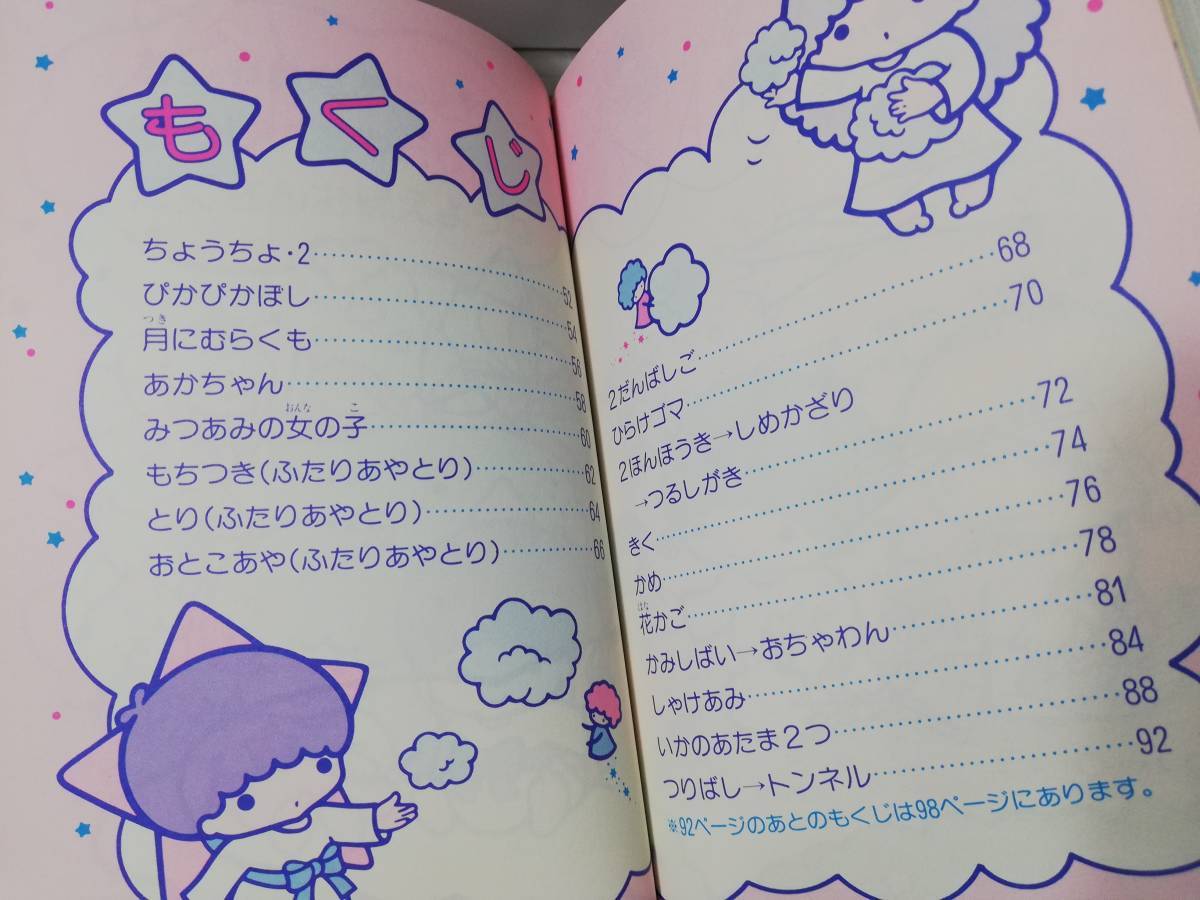 もくじ
ちょうちょ・2……52
ぴかぴかぼし……54
月にむらくも……56
つき
あかちゃん……58
みつあみの女の子……60
おんな こ
もちつき(ふたりあやとり)……62
とり(ふたりあやとり)……64
おとこあや(ふたりあやとり)……66
2だんばしご……68
ひらけゴマ……70
2ほんほうき→しめかざり
→つるしがき……72
きく……74
かめ……76
花かご……78
はな
かみしばい→おちゃわん……81
しゃけあみ……84
いかのあたま2つ……88
つりばし→トンネル……92
※92ページのあとのもくじは98ページにあります。